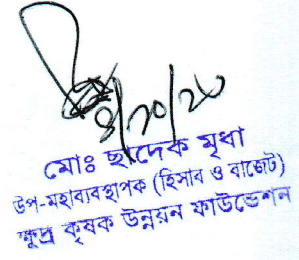 ৪/১০/২০
মোঃ ছাদেক মৃধা
উপ-মহাব্যবস্থাপক (হিসাব ও বাজেট)
ক্ষুদ্র কৃষক উন্নয়ন ফাউন্ডেশন